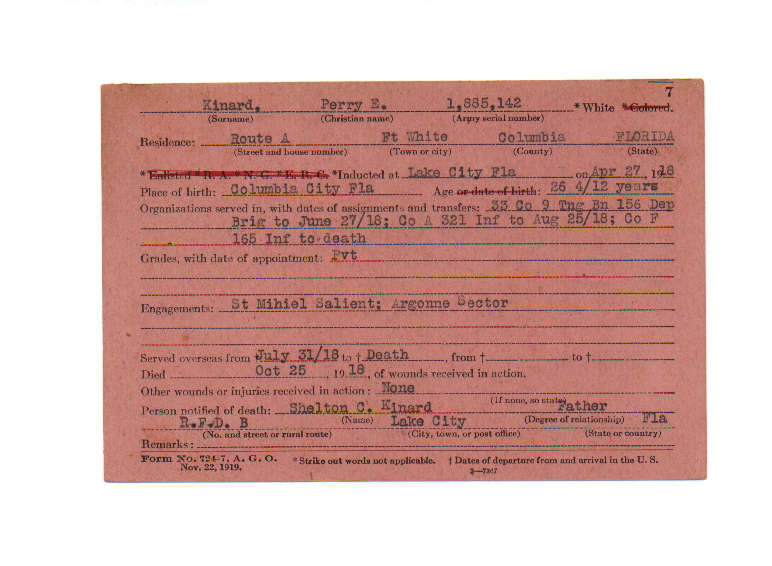 7
Kinard, Perry E. 1,885,142 * White * Colored.
(Surname) (Christian name) (Army serial number)
Residence: Route A Ft White Columbia FLORIDA
(Street and house number) (Town or city) (County) (State)
* Enlisted * R. A. * N. G. * E. R. C. * Inducted at Lake City Fla on Apr 27, 1918
Place of birth: Columbia City Fla Age or date of birth: 26 4/12 years
Organizations served in, with dates of assignments and transfers: 33 Co 9 Tng Bn 156 Dep
Brig to June 27/18; Co A 321 Inf to Aug 25/18; Co F
165 Inf to death
Grades, with date of appointment: Pvt
Engagements: St Mihiel Salient; Argonne Sector
Served overseas from * July 31/18 to † Death, from † to †
Died Oct 25, 1918, of wounds received in action.
Other wounds or injuries received in action: None
(If none, so state)
Person notified of death: Shelton C. Kinard Father
(Name) (Degree of relationship)
R.F.D. B Lake City Fla
(No. and street or rural route) (City, town, or post office) (State or country)
Remarks:
Form No. 724-7, A. G. O. * Strike out words not applicable. † Dates of departure from and arrival in the U. S.
Nov. 22, 1919. 3—7367